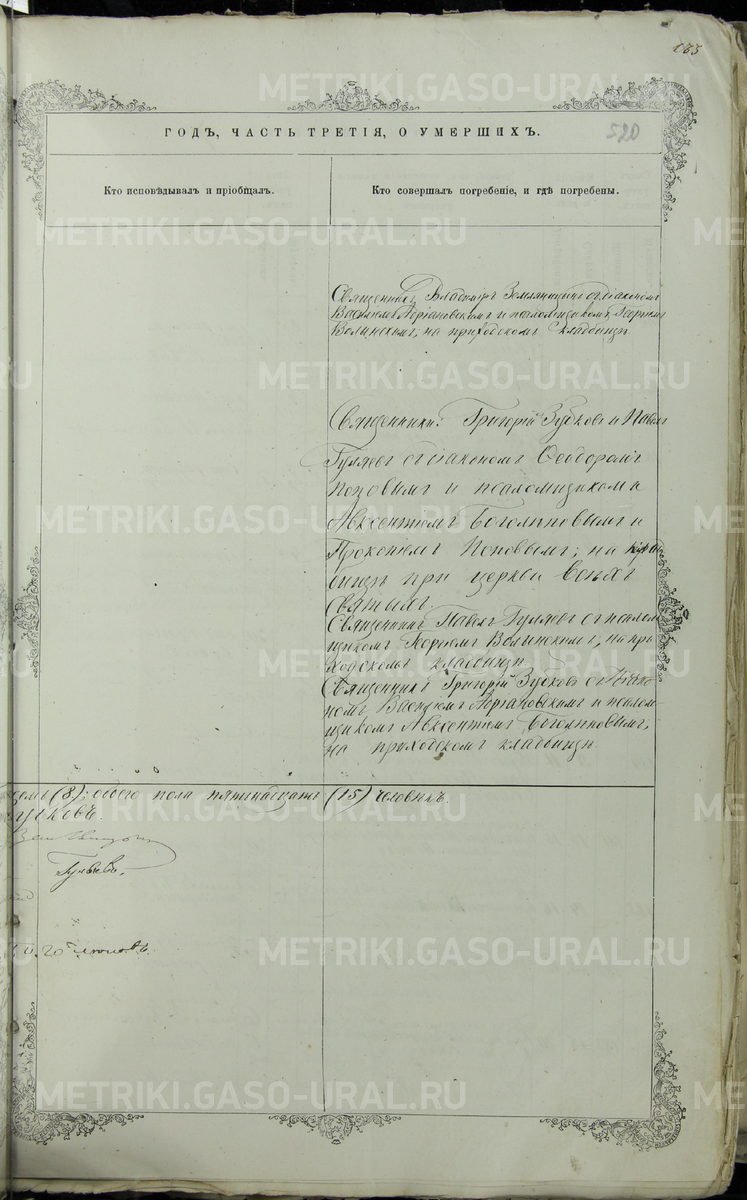 185
METRIKI.GASO-URAL.RU
ГОДЪ, ЧАСТЬ ТРЕТІЯ, О УМЕРШИХЪ.
520
Кто исповѣдывалъ и пріобщалъ.
Кто совершалъ погребеніе, и гдѣ погребены.
Священникъ Владиміръ Земляницынъ съ діакономъ
Василіемъ Адріановскимъ и псаломщикомъ Георгіемъ
Волынскимъ, на приходскомъ кладбищѣ
Священники: Григорій Зубковъ и Павелъ
Гуляевъ съ діакономъ Ѳеодоромъ
Поповымъ и псаломщиками
Авксентіемъ Боголѣповымъ и
Прокопіемъ Поповымъ; на клад
бищѣ при церкви Всѣхъ
Святыхъ.
Священникъ Павелъ Гуляевъ съ псалом
щикомъ Георгіемъ Волынскимъ, на при
ходскомъ кладбищѣ
Священникъ Григорій Зубковъ съ діако
номъ Василіемъ Адріановскимъ и псалом
щикомъ Авксентіемъ Боголѣповымъ,
на приходскомъ кладбищѣ
(8); обоего пола пятнадцать (15) человѣкъ.
Гуляевъ.